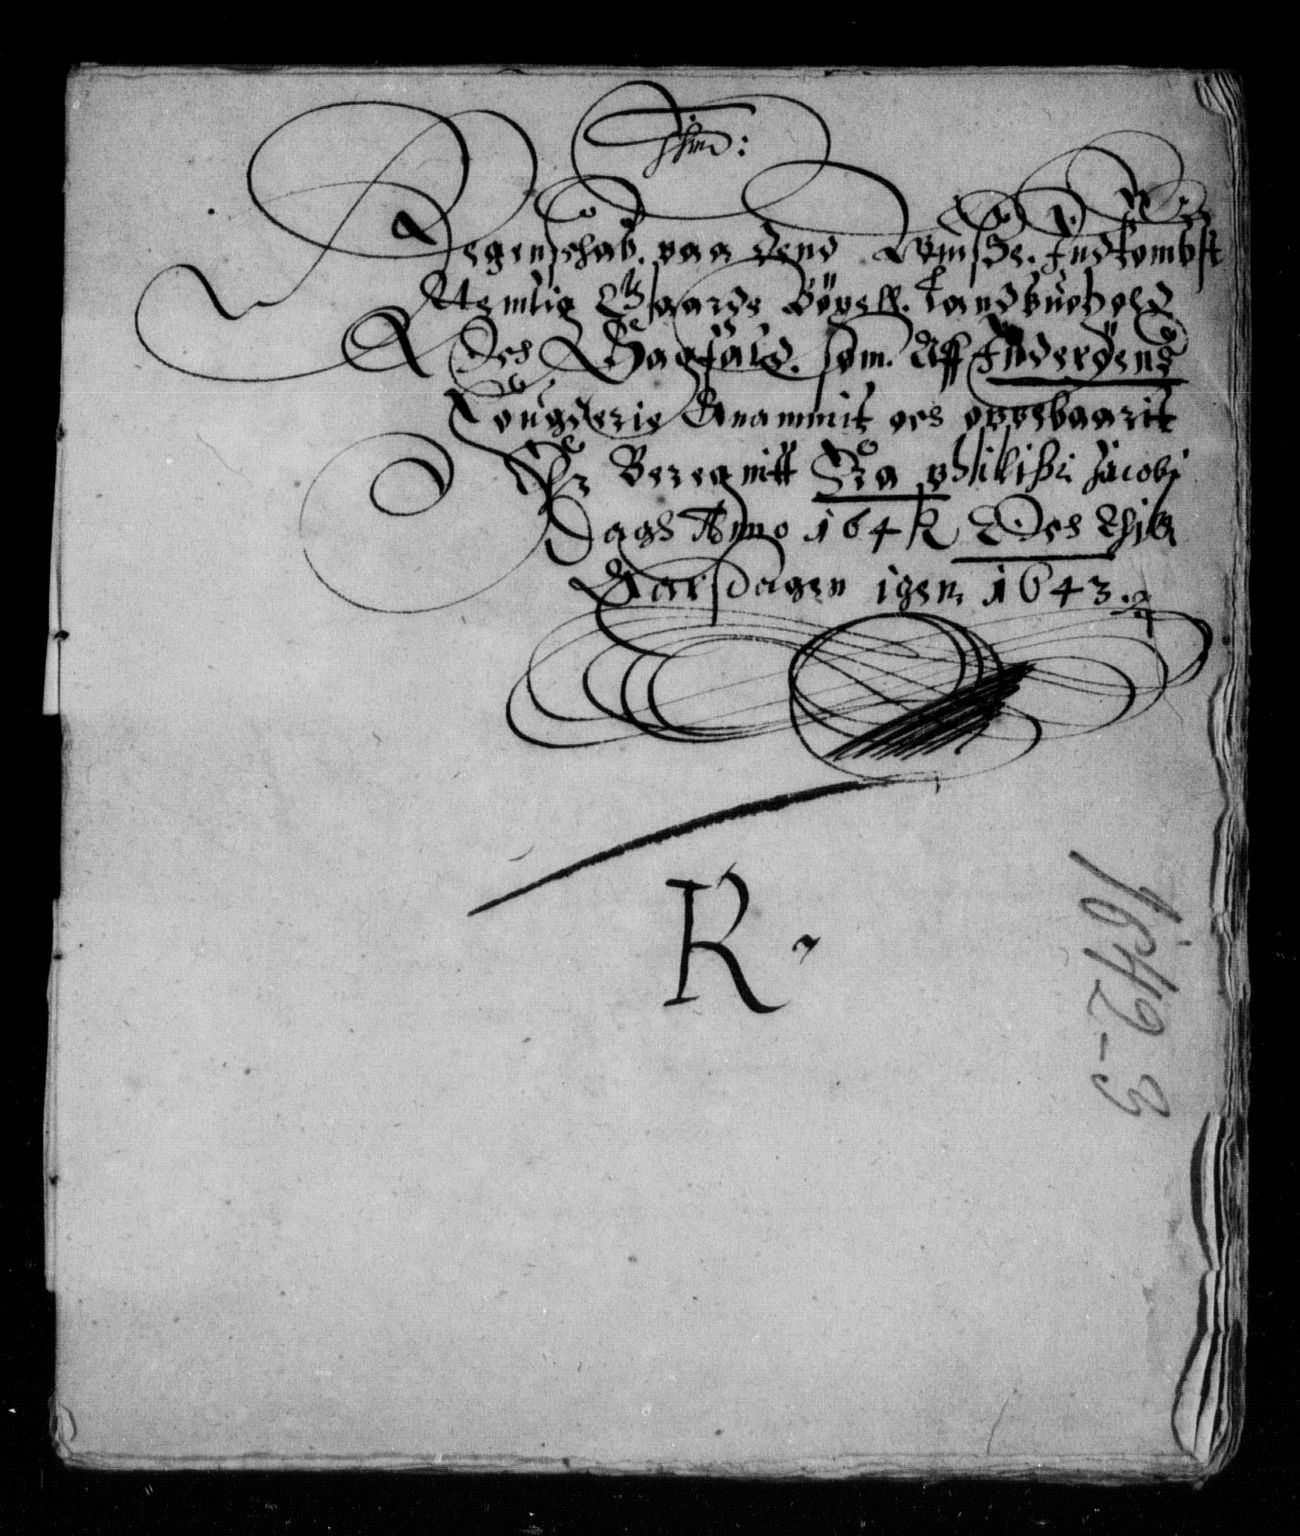 Regenschab. paa dend Wmisße. Indkombst
Nemlig Gaarde Böxell. Landbuohold
Och Sagfald. som. Aff Inderöens
Fougderie Anammit och oppebaarit
Er Beregnitt Fra Philiphi Jacobj
Dags Anno 164R Och Thill
Aarsdagen igen 1643.
R
1642-3